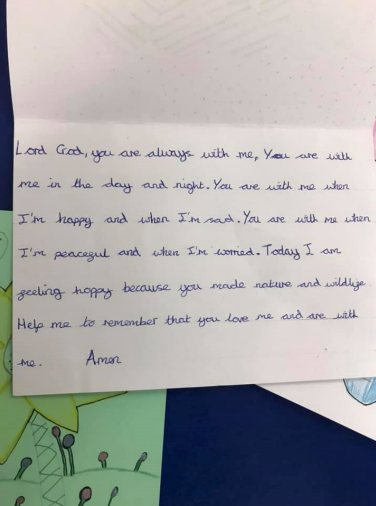 Lord God, you are always with me, You are with
me in the day and night. You are with me when
I'm happy and when I'm sad. You are with me when
I'm peaceful and when I'm worried. Today I am
feeling happy because you made nature and wildlife.
Help me to remember that you love me and are with
me. Amen